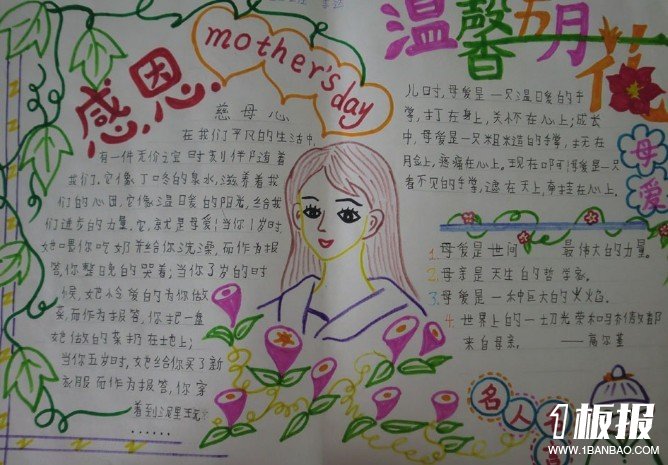 感恩
mother's day
温馨五月花
慈母心
在我们平凡的生活中,
有一件无价之宝时刻伴随着
我们。它像丁咚的泉水,滋养着我
们的心田,它像温暖的阳光,给我
们进步的力量,它就是母爱!当你1岁时,
她喂你吃奶并给你洗澡,而作为报
答,你整晚的哭着;当你3岁的时
候,她怜爱的为你做
菜,而作为报答,你把一盘
她做的菜扔在地上;
当你五岁时,她给你买了新
衣服而作为报答,你穿
着到泥里玩
......
儿时,母爱是一只温暖的手
掌,打在身上,关怀在心上;成长
中,母爱是一只粗糙的手掌,
疼痛在心上。现在啊!母爱是一只
看不见的手掌,遮在天上,牵挂在心上。
母爱
1.母爱是世间 最伟大的力量。
2.母亲是天生的哲学家。
3.母爱是一种巨大的火焰。
4.世界上的一切光荣和骄傲都
来自母亲。 ——高尔基
名人
1板报
WWW.1BANBAO.COM